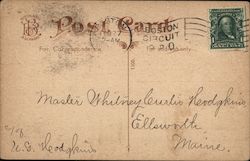 Post Card
For Correspondence
BOSTON
CIRCUIT
Master Whitney Curtis Hodgkins
Ellsworth
Maine.
Hodgkins